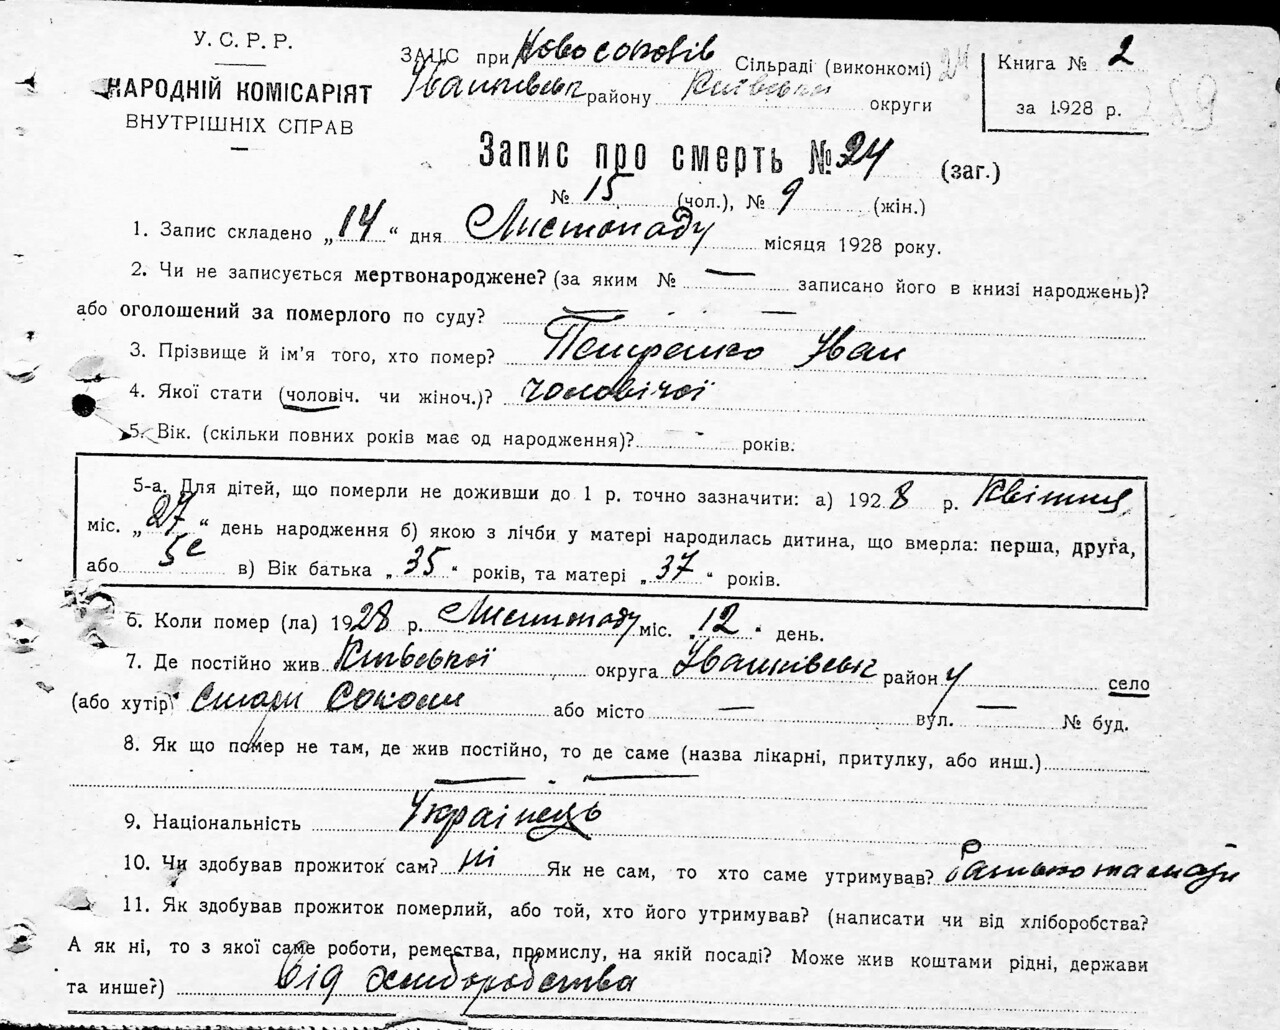 У. С. Р. Р.
НАРОДНІЙ КОМІСАРІЯТ
ВНУТРІШНІХ СПРАВ
ЗАЦС при Новосоковів Сільраді (виконкомі) 24
Іванківськ району Київськи округи
Книга № 2
за 1928 р.
289
Запис про смерть № 24 (заг.)
№ 15 (чол.), № 9 (жін.)
1. Запис складено „14“ дня Листопаду місяця 1928 року.
2. Чи не записується мертвонароджене? (за яким № — записано його в книзі народжень)?
або оголошений за померлого по суду? —
3. Прізвище й ім'я того, хто помер? Петренко Іван
4. Якої стати (чоловіч. чи жіноч.)? чоловічої
5. Вік. (скільки повних років має од народження)? - років.
5-а. Для дітей, що померли не доживши до 1 р. точно зазначити: а) 1928 р. Квітня
міс. „27“ день народження б) якою з лічби у матері народилась дитина, що вмерла: перша, друга,
або 5е в) Вік батька „35“ років, та матері „37“ років.
6. Коли помер (ла) 1928 р. Листопаду міс. „12“ день.
7. Де постійно жив Київської округа Іванківськ район у село
(або хутір) Стари Соколи або місто — вул. — № буд.
8. Як що помер не там, де жив постійно, то де саме (назва лікарні, притулку, або инш.)
— . —
9. Національність Українець
10. Чи здобував прожиток сам? ні Як не сам, то хто саме утримував? Батько та мати
11. Як здобував прожиток померлий, або той, хто його утримував? (написати чи від хліборобства?
А як ні, то з якої саме роботи, ремества, промислу, на якій посаді? Може жив коштами рідні, держави
та инше?) від хліборобства